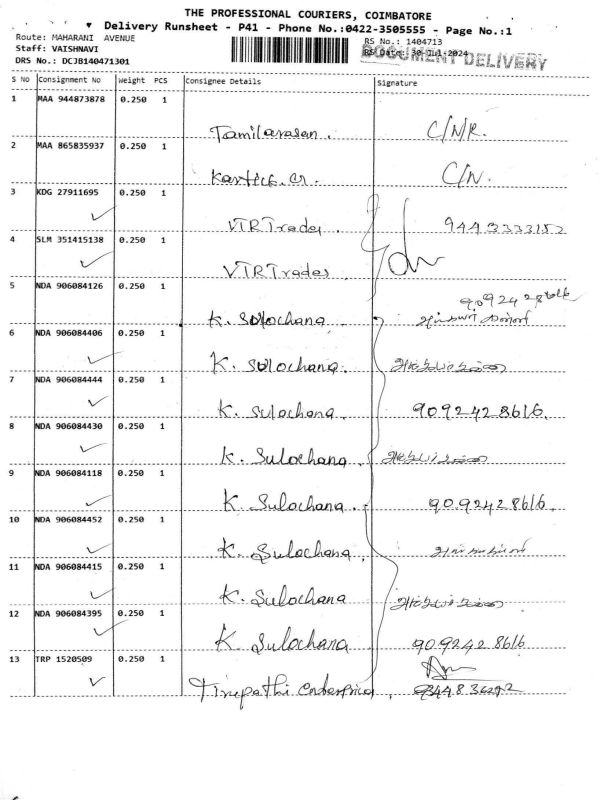 THE PROFESSIONAL COURIERS, COIMBATORE
Delivery Runsheet - P41 - Phone No.:0422-3505555 - Page No.:1
Route: MAHARANI AVENUE
RS No.: 1404713
Staff: VAISHNAVI
RS Date: 30-Jul-2024
DOCUMENT DELIVERY
DRS No.: DCJB140471301
S No Consignment No Weight PCS Consignee Details Signature
1 MAA 944873878 0.250 1
Tamilarasan. C/N/R.
2 MAA 865835937 0.250 1
Karthik. C/N.
3 KDG 27911695 0.250 1
VTR Trades. 9443333152
4 SLM 351415138 0.250 1
VTR Trades
5 NDA 906084126 0.250 1
9092428616
K. Sulochana
6 NDA 906084406 0.250 1
K. Sulochana.
7 NDA 906084444 0.250 1
K. Sulochana. 9092428616.
8 NDA 906084430 0.250 1
K. Sulochana
9 NDA 906084118 0.250 1
K. Sulochana. 9092428616.
10 NDA 906084452 0.250 1
K. Sulochana.
11 NDA 906084415 0.250 1
K. Sulochana
12 NDA 906084395 0.250 1
K Sulochana 9092428616
13 TRP 1520509 0.250 1
Tirupathi enterprices